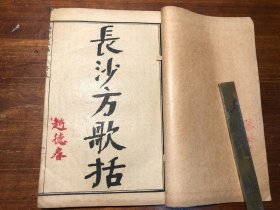 長沙方歌括
趙德春